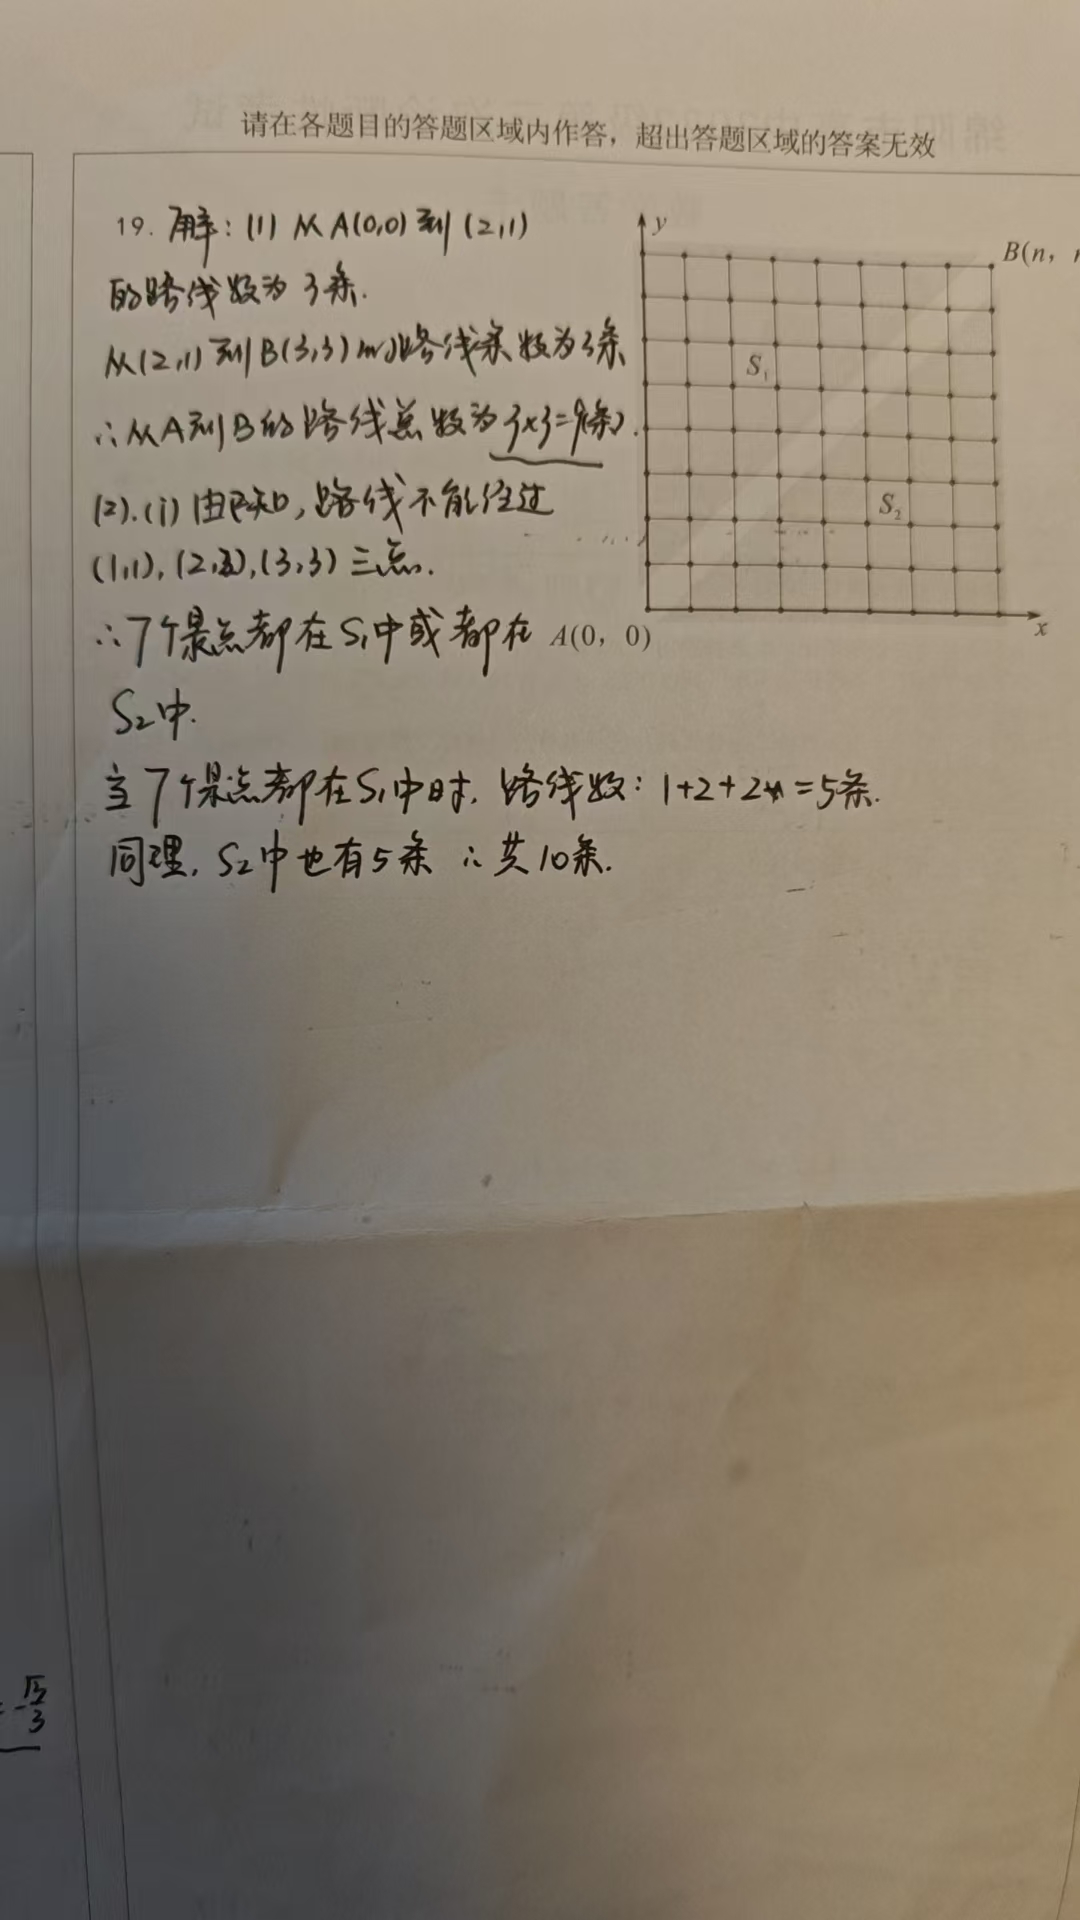 请在各题目的答题区域内作答，超出答题区域的答案无效
19. 解：(1) 从A(0,0)到(2,1)
的路线数为3条.
从(2,1)到B(3,3)的路线条数为3条
∴从A到B的路线总数为3×3=9(条).
(2).(i) 由已知，路线不能经过
(1,1),(2,2),(3,3)三点.
∴7个点都在S₁中或都在
S₂中.
当7个点都在S₁中时，路线数：1+2+2=5条.
同理，S₂中也有5条 ∴共10条.
y
B(n,
S₁
S₂
A(0，0)
x
-√3/3